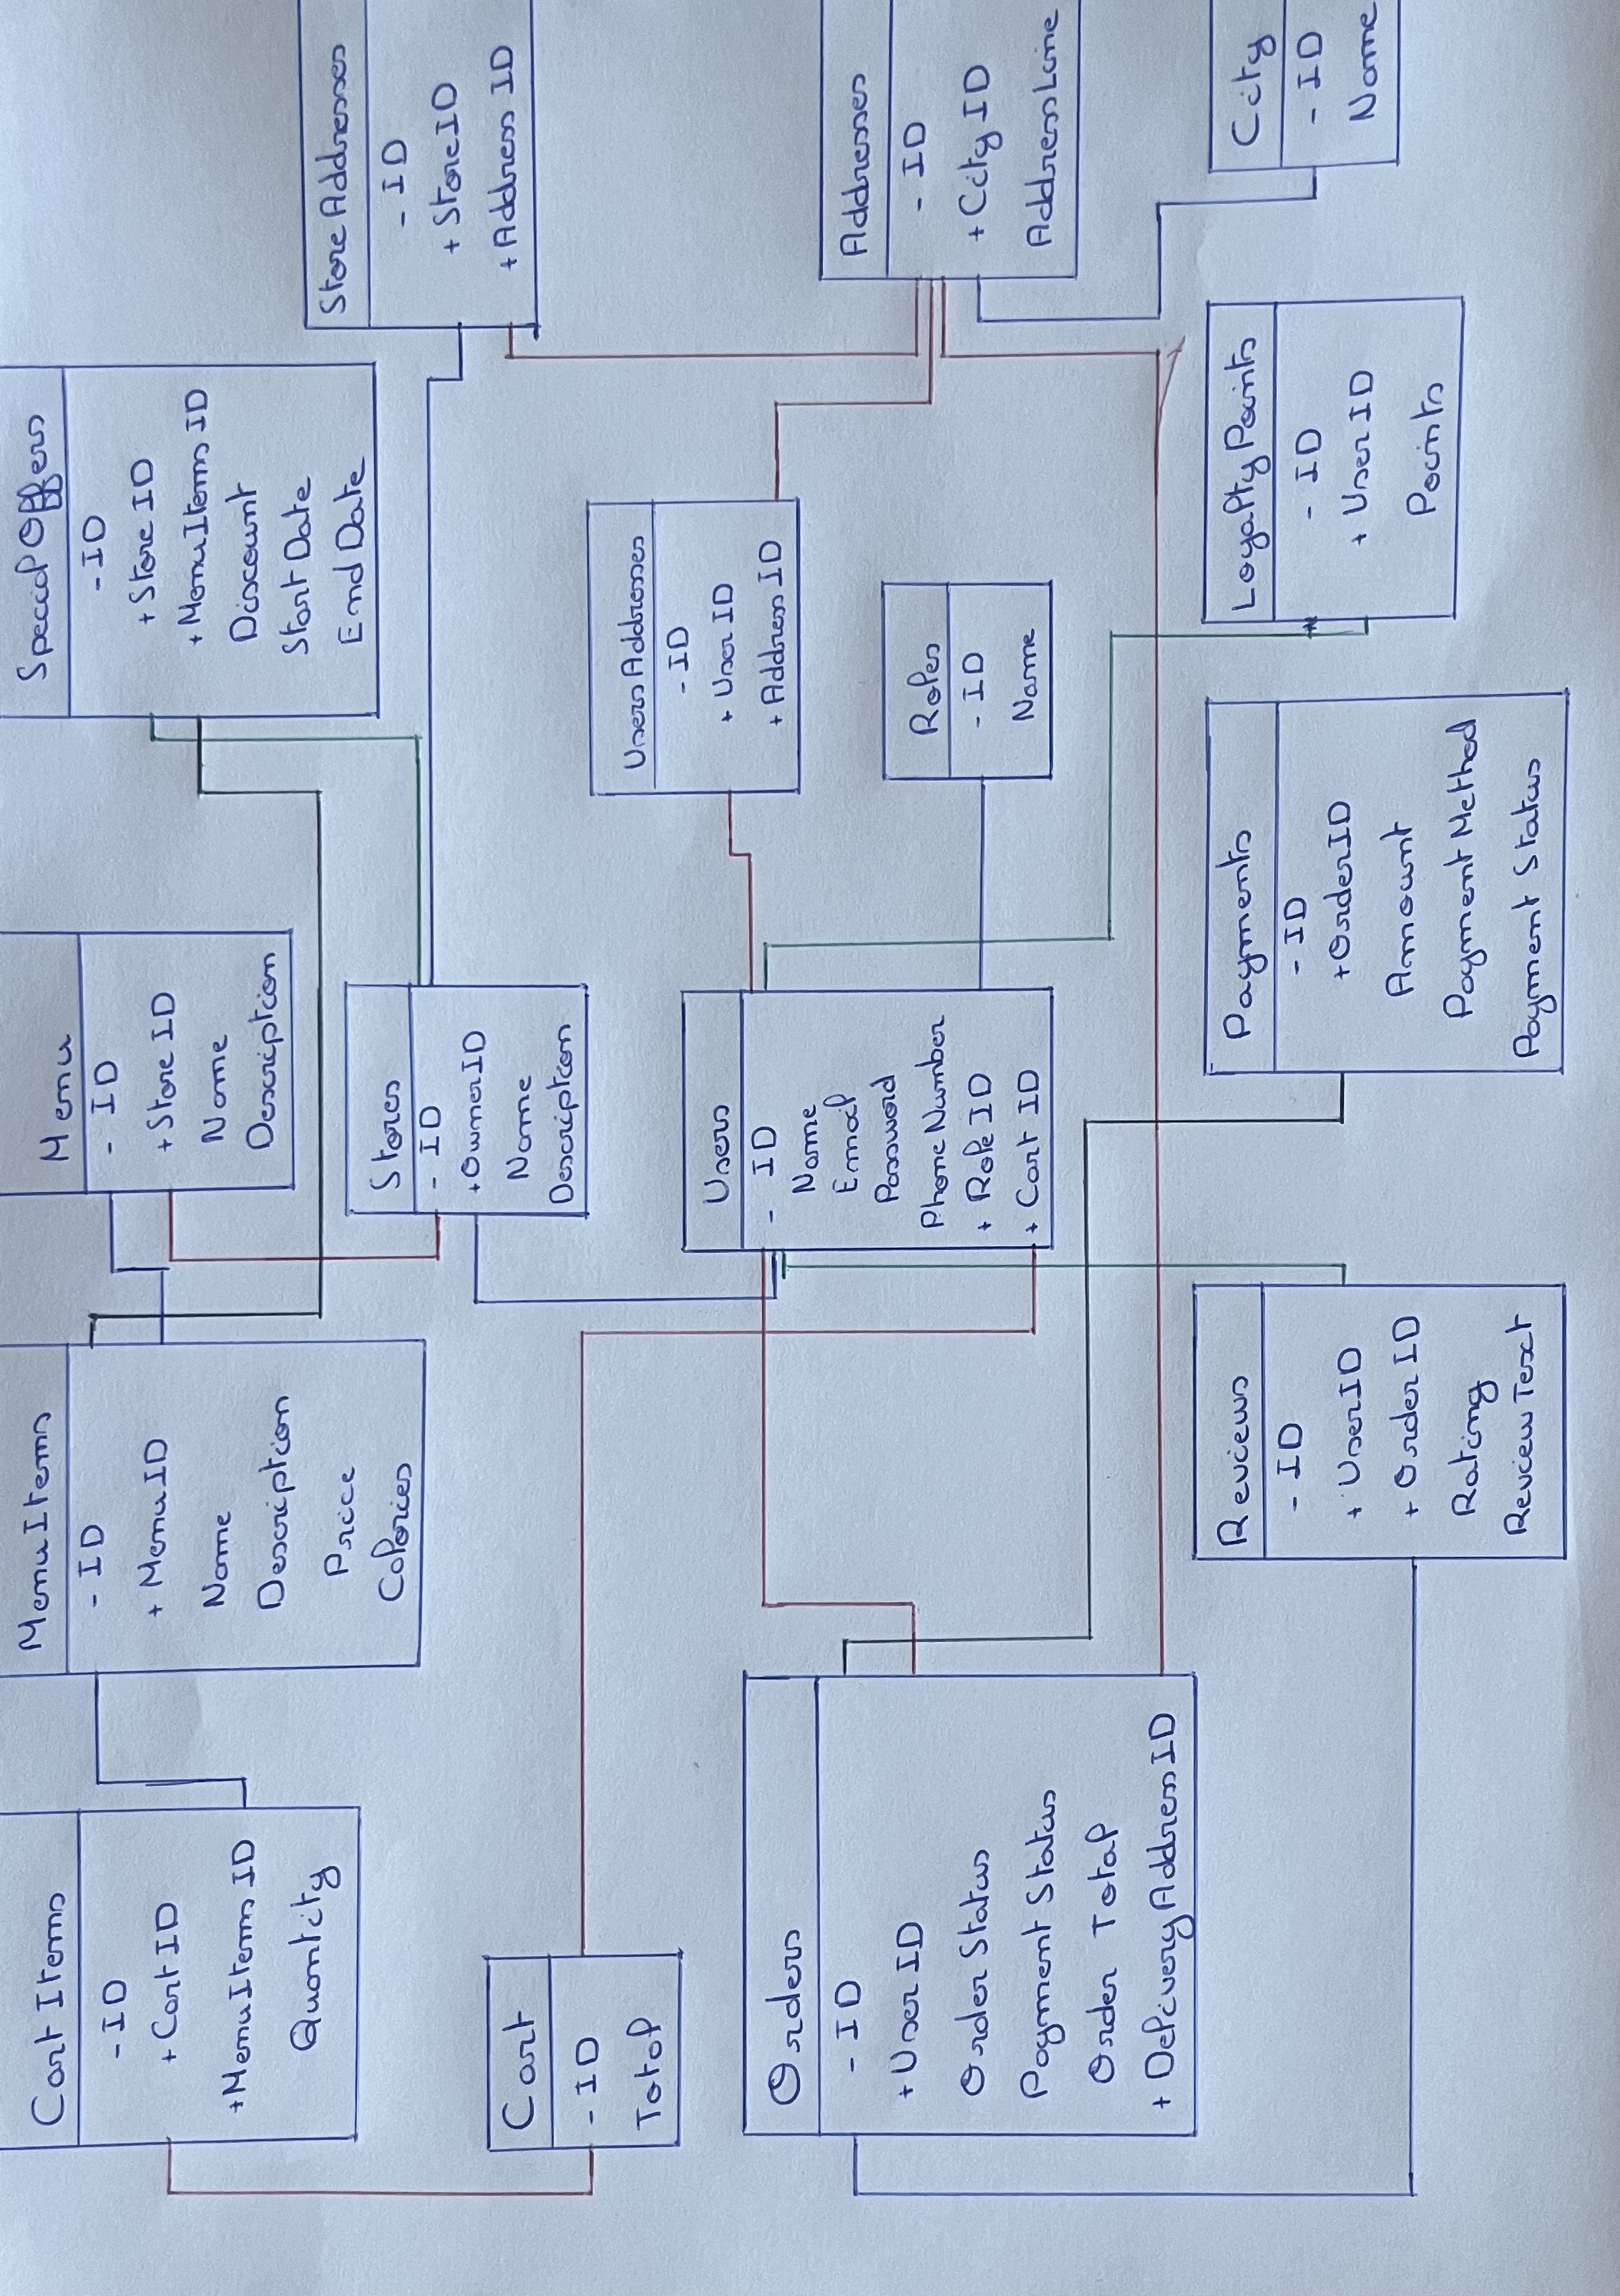 Cart Items
- ID
+ Cart ID
+ MenuItems ID
Quantity
MenuItems
- ID
+ Menu ID
Name
Description
Price
Calories
Menu
- ID
+ Store ID
Name
Description
Special Offers
- ID
+ Store ID
+ MenuItems ID
Discount
Start Date
End Date
Store Addresses
- ID
+ Store ID
+ Address ID
Stores
- ID
+ Owner ID
Name
Description
Cart
- ID
Total
Users Addresses
- ID
+ User ID
+ Address ID
Users
- ID
Name
Email
Password
Phone Number
+ Role ID
+ Cart ID
Orders
- ID
+ User ID
Order Status
Payment Status
Order Total
+ Delivery Address ID
Roles
- ID
Name
Addresses
- ID
+ City ID
Address Line
Reviews
- ID
+ User ID
+ Order ID
Rating
Review Text
Payments
- ID
+ Order ID
Amount
Payment Method
Payment Status
Loyalty Points
- ID
+ User ID
Points
City
- ID
Name